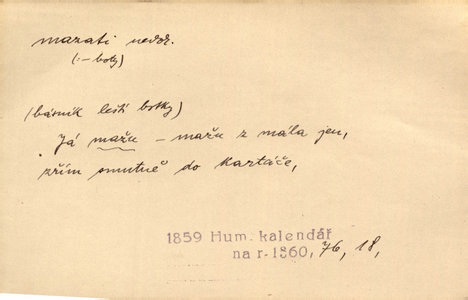 mazati nedok.
(:– boty)
(básník leští botky)
Já mažu – mažu z mála jen,
zřím smutně do kartáče,
1859 Hum. kalendář
na r. 1860, 76, 18,